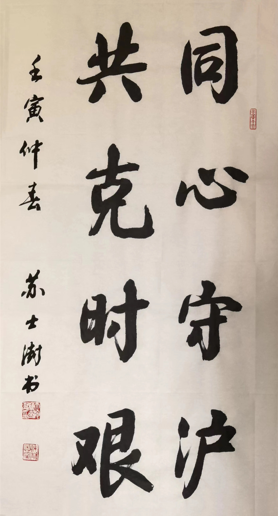 同心守沪
共克时艰
壬寅仲春 苏士澍书